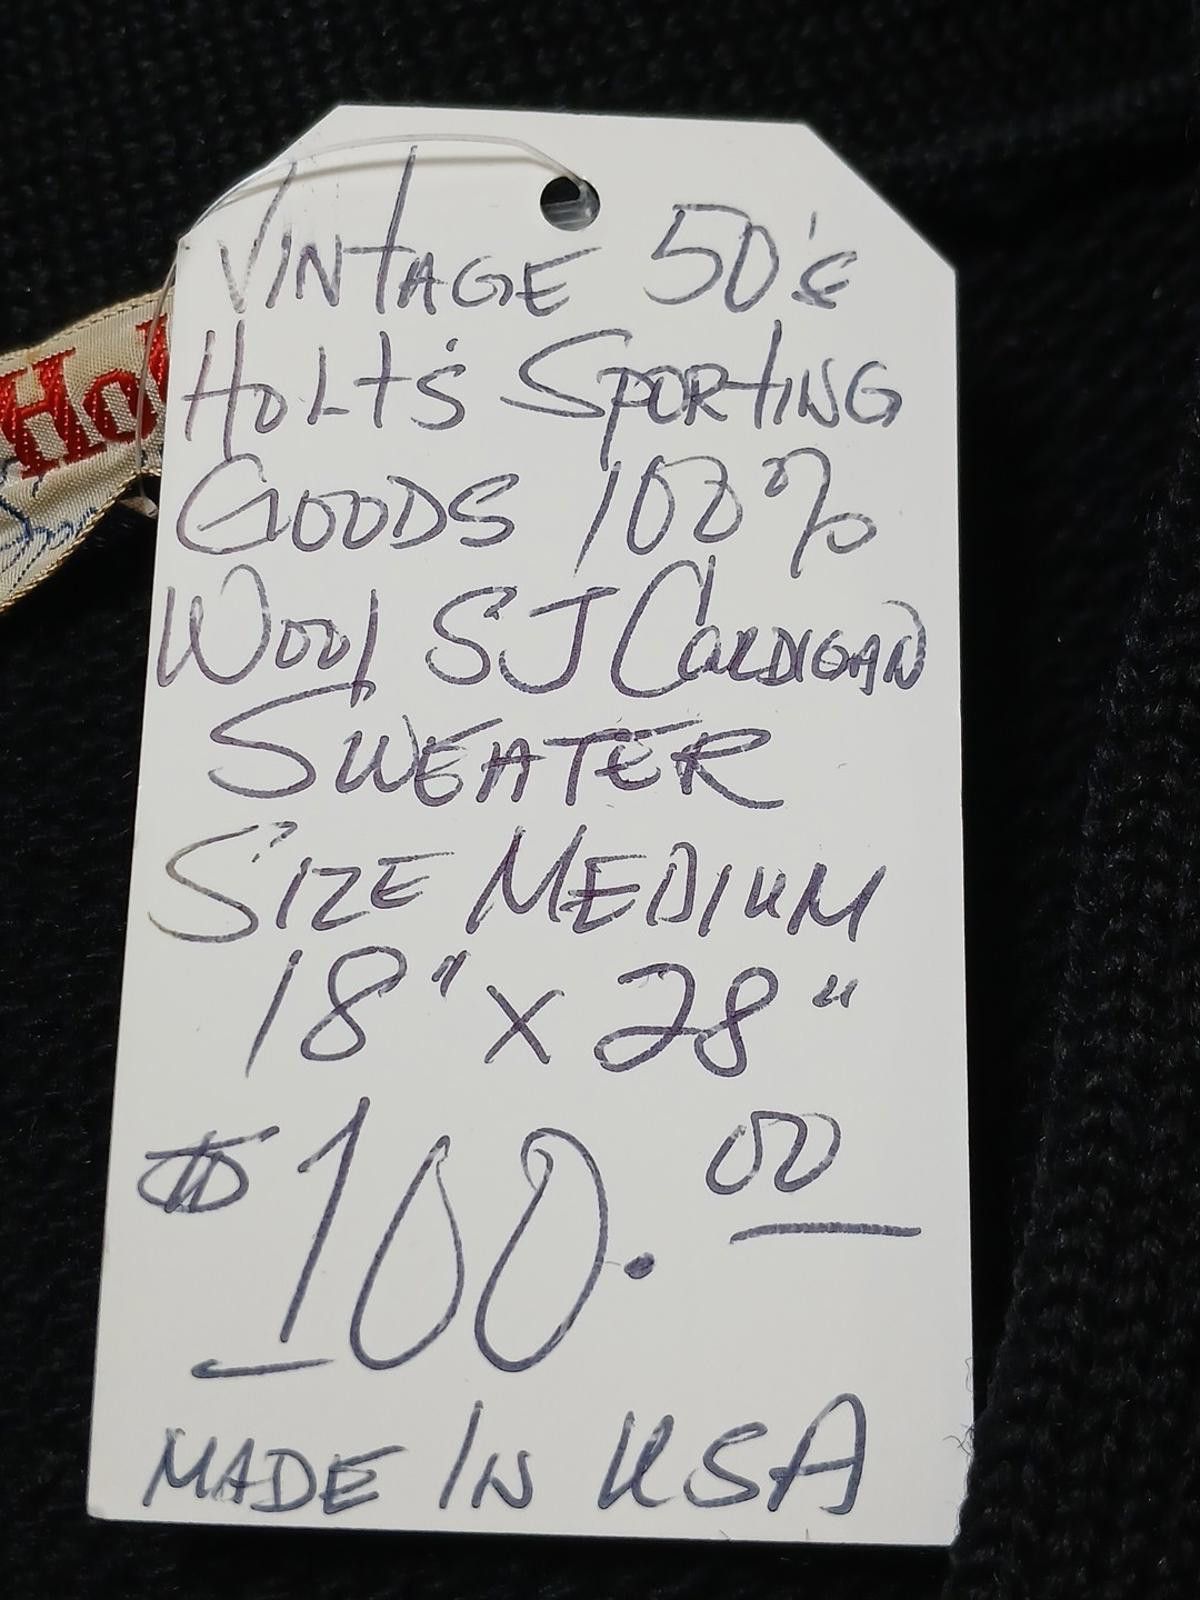 Vintage 50's
Holt's Sporting
Goods 100%
Wool SJ Cardigan
Sweater
Size Medium
18" x 28"
$100.00
Made In USA
Hol